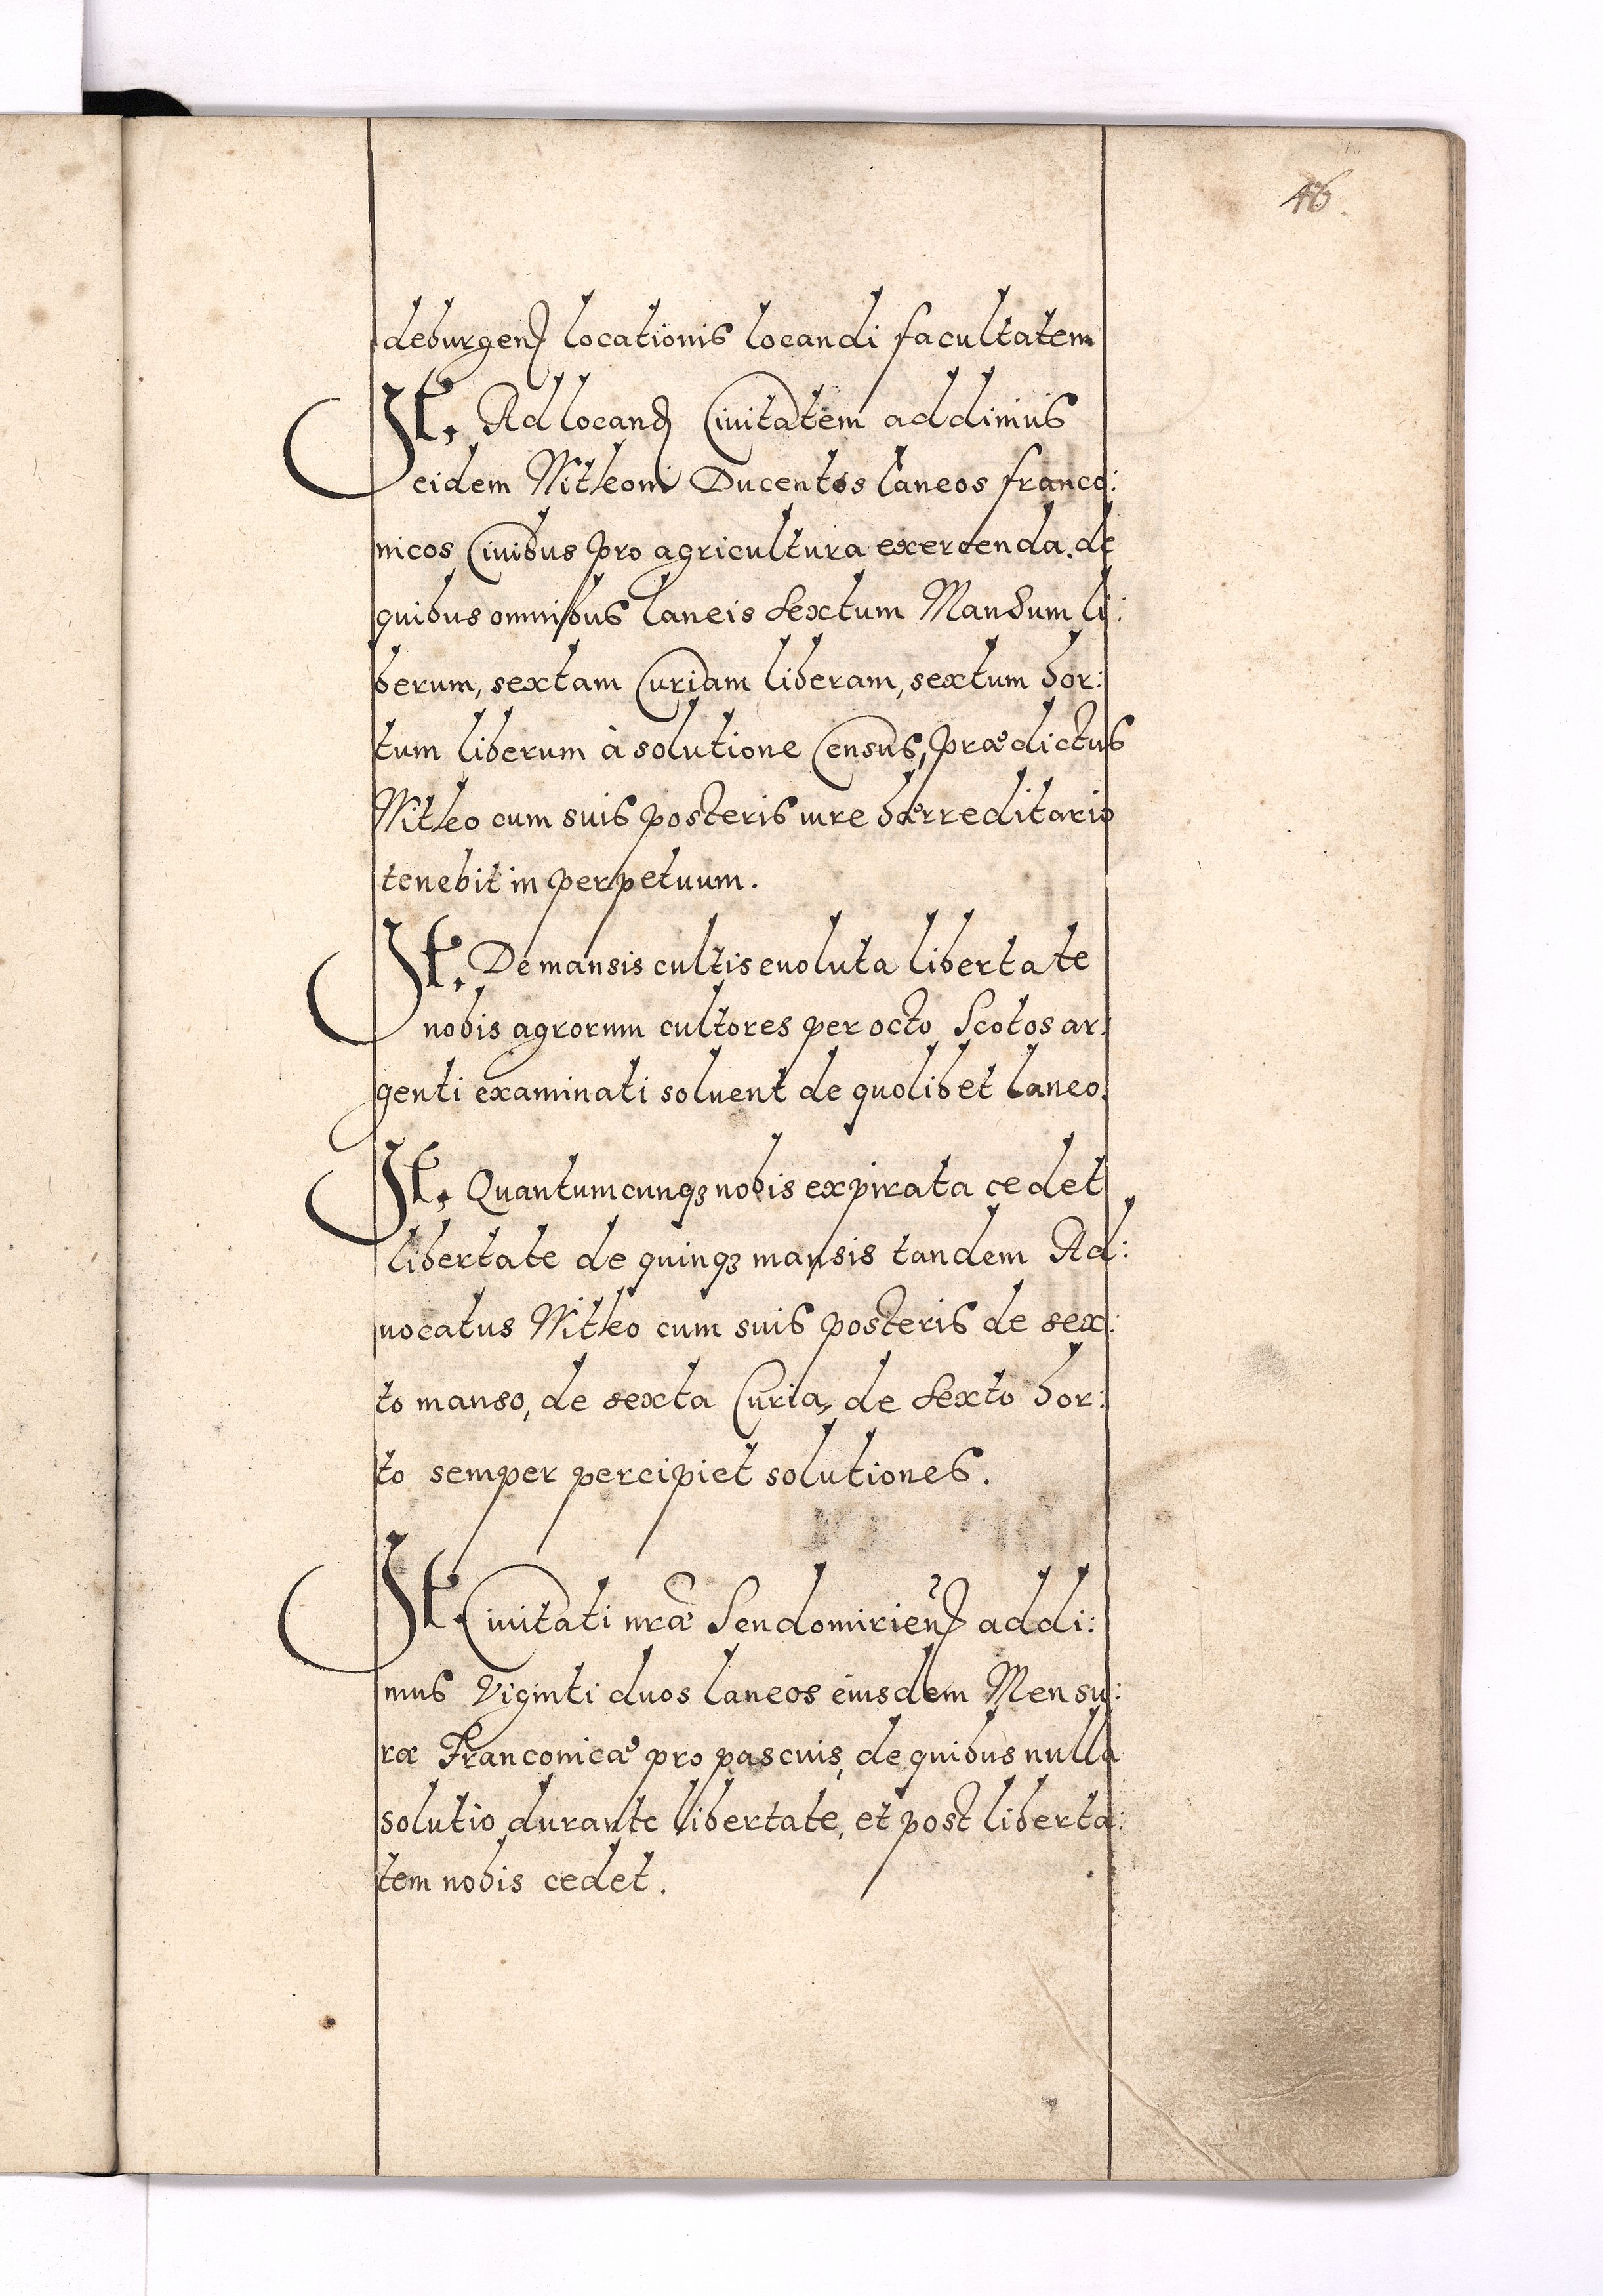 46.
deburgen locationis locandi facultatem
It. Ad locand Ciuitatem addimus
eidem Witleoni Ducentos laneos franco:
nicos Ciuibus pro agricultura exercenda. de
quibus omnibus laneis Sextum Mansum li:
berum, sextam Curiam liberam, sextum hor:
tum liberum à solutione Census, prædictus
Witleo cum suis posteris iure hærreditario
tenebit in perpetuum.
It. De mansis cultis euoluta libertate
nobis agrorum cultores per octo Scotos ar:
genti examinati soluent de quolibet laneo.
It. Quantumcunqꝫ nobis expirata cedet
libertate de quinqꝫ mansis tandem Ad:
uocatus Witleo cum suis posteris de sex:
to manso, de sexta Curia, de Sexto hor:
to semper percipiet solutiones.
It. Ciuitati nræ Sendomirien addi:
mus Viginti duos laneos eiusdem Mensu:
ræ Franconicæ pro pascuis, de quibus nulla
solutio durante libertate, et post liberta:
tem nobis cedet.